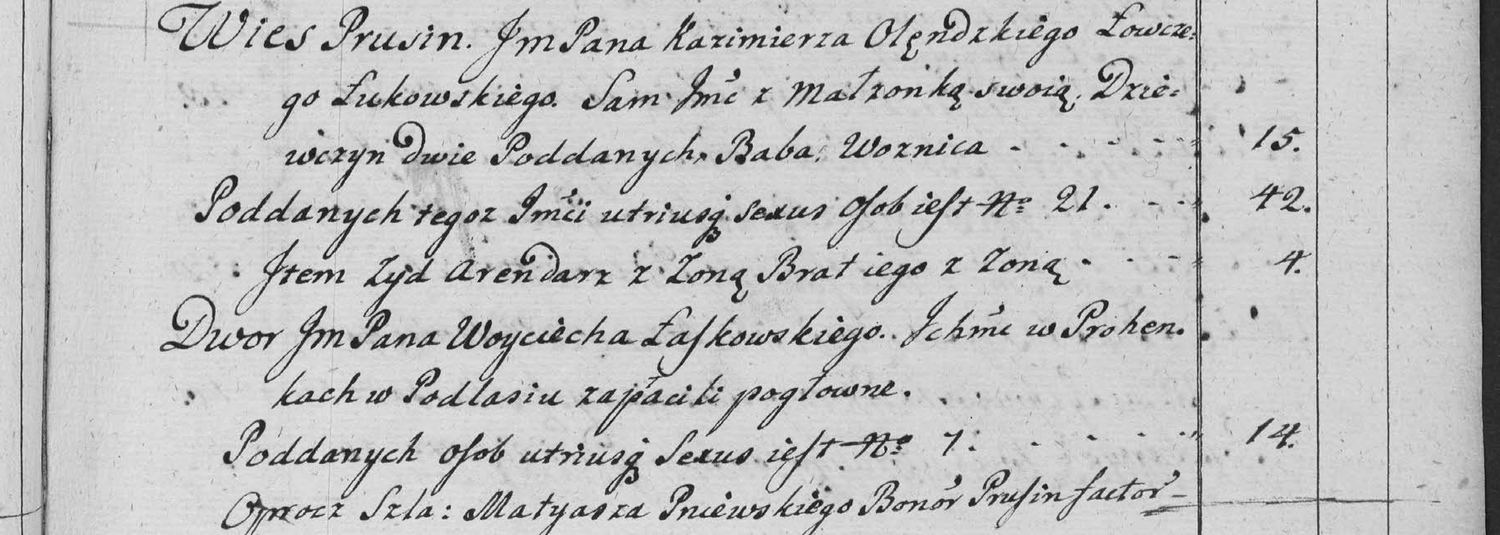 Wies Prusin. Jm Pana Kazimierza Olęndzkiego Łowcze:
go Łukowskiego. Sam Jmć z Małzonką swoią, Dzie:
wczyn dwie Poddanych, Baba, Woznica - - - - - 15.
Poddanych tegoz Jmci utriusq sexus osob iest No 21. - - 42.
Jtem Zyd Arendarz z Zoną Brat iego z Zoną - - - 4.
Dwor Jm Pana Woyciecha Łaskowskiego. Jchmć w Prohen:
kach w Podlasiu zapłacili pogłowne.
Poddanych osob utriusq Sexus iest No 7. - - - - - 14.
Oprocz Szla: Matyasza Pniewskiego Bonor Prusin factor